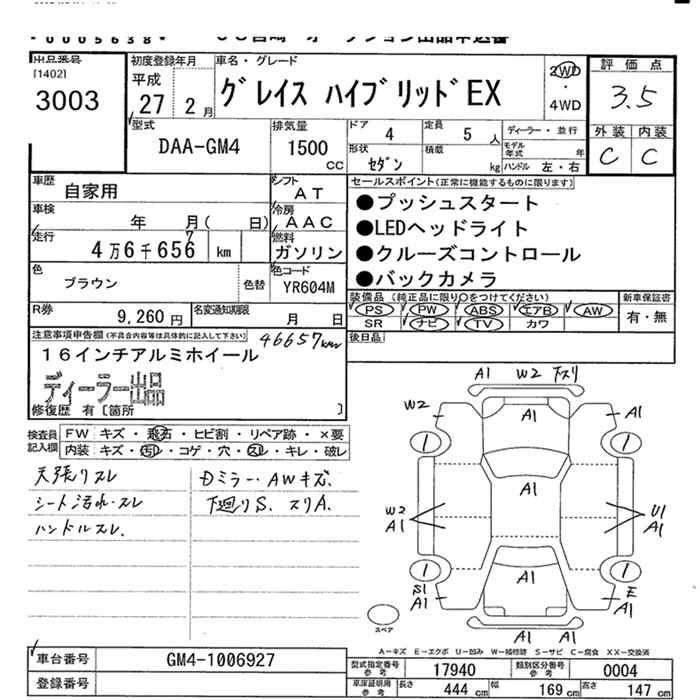 *0005638*
出品番号 [1402] 3003
初度登録年月 平成 27 2月
車名・グレード グレイス ハイブリッドEX
2WD ・ 4WD
評価点 3.5
外装 内装
C C
型式 DAA-GM4
排気量 1500 CC
ドア 4
定員 5 人
ディーラー・並行
形状 セダン
積載 kg
モデル年式 年
ハンドル 左・右
車歴 自家用
シフト AT
セールスポイント(正常に機能するものに限ります)
車検 年 月( 日)
冷房 AAC
●プッシュスタート
●LEDヘッドライト
走行 4万6千656 7 km
燃料 ガソリン
●クルーズコントロール
●バックカメラ
色 ブラウン
色替
色コード YR604M
装備品 (純正品に限り○をつけてください)
新車保証書
PS PW ABS エアB AW
SR ナビ TV カワ
有・無
R券 9,260円
名変通知期限 月 日
後日品
注意事項申告欄(不具合内容等は具体的に記入して下さい)
46657km
16インチアルミホイール
ディーラー出品
修復歴 有 [箇所 ]
検査員記入欄
FW キズ・飛石・ヒビ割・リペア跡・×要
内装 キズ・汚レ・コゲ・穴・スレ・キレ・破レ
天張りスレ
シート汚れ・スレ
ハンドルスレ.
Dミラー・AWキズ.
下廻りS. スリA.
A1 W2 下スリ
W2 A1 A1
1 1
A1
W2 A1
U1 A1
1 1
A1
S1 A1
E A1
A1
A1
スペア
A－キズ E－エクボ U－凹み W－補修跡 S－サビ C－腐食 XX－交換済
車台番号 GM4-1006927
登録番号
型式指定番号 参考 17940
類別区分番号 参考 0004
車庫証明用 参考 長さ 444 cm 幅 169 cm 高さ 147 cm